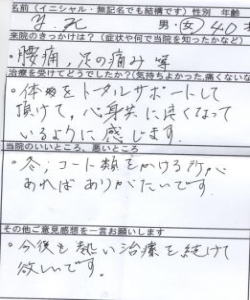 名前(イニシャル・無記名でも結構です) 性別 年齢
男・女 40才
来院のきっかけは?(症状や何で当院を知ったかなど)
・腰痛,足の痛み等
治療を受けてどうでしたか?(気持ちよかった,痛くない
・体をトータルサポートして
頂けて,心身共に良くなって
いるように感じます.
当院のいいところ、悪いところ
・冬,コート類をかける所が
あればありがたいです.
その他ご意見感想を一言お願いします
・今後も熱い治療を続けて
欲しいです.